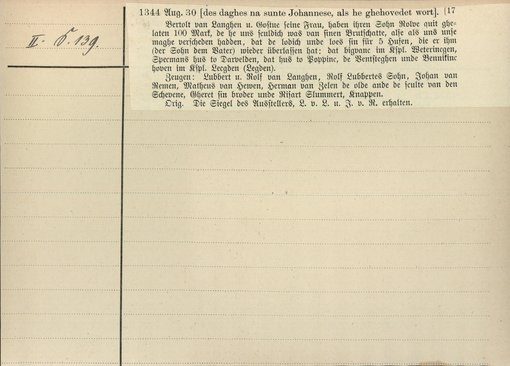 II. d. 139.
1344 Aug. 30 [des daghes na sunte Johannese, als he ghehovedet wort]. (17
Bertolt van Langhen u. Gostue seine Frau, haben ihren Sohn Rolve quit ghe-
laten 100 Mark, de he uns sculdich was van sinen Brutschatte, alse als uns unse
maghe verscheden hadden, dat de lodich unde loes sin für 5 Hufen, die er ihm
(der Sohn dem Vater) wieder überlassen hat: dat bigvanc im Kspl. Weteringen,
Specmans hus to Darvelden, dat hus to Poppinc, de Ventsteghen unde Bennikinc
hoven im Kspl. Leegden (Legden).
Zeugen: Lubbert u. Rolf van Langhen, Rolf Lubbertes Sohn, Johan van
Remen, Matheus van Hewen, Herman van Zelen de olde ande de sculte van den
Schevene, Gheret sin broder unde Risart Slummert, Knappen.
Orig. Die Siegel des Ausstellers, L. v. L. u. J. v. R. erhalten.